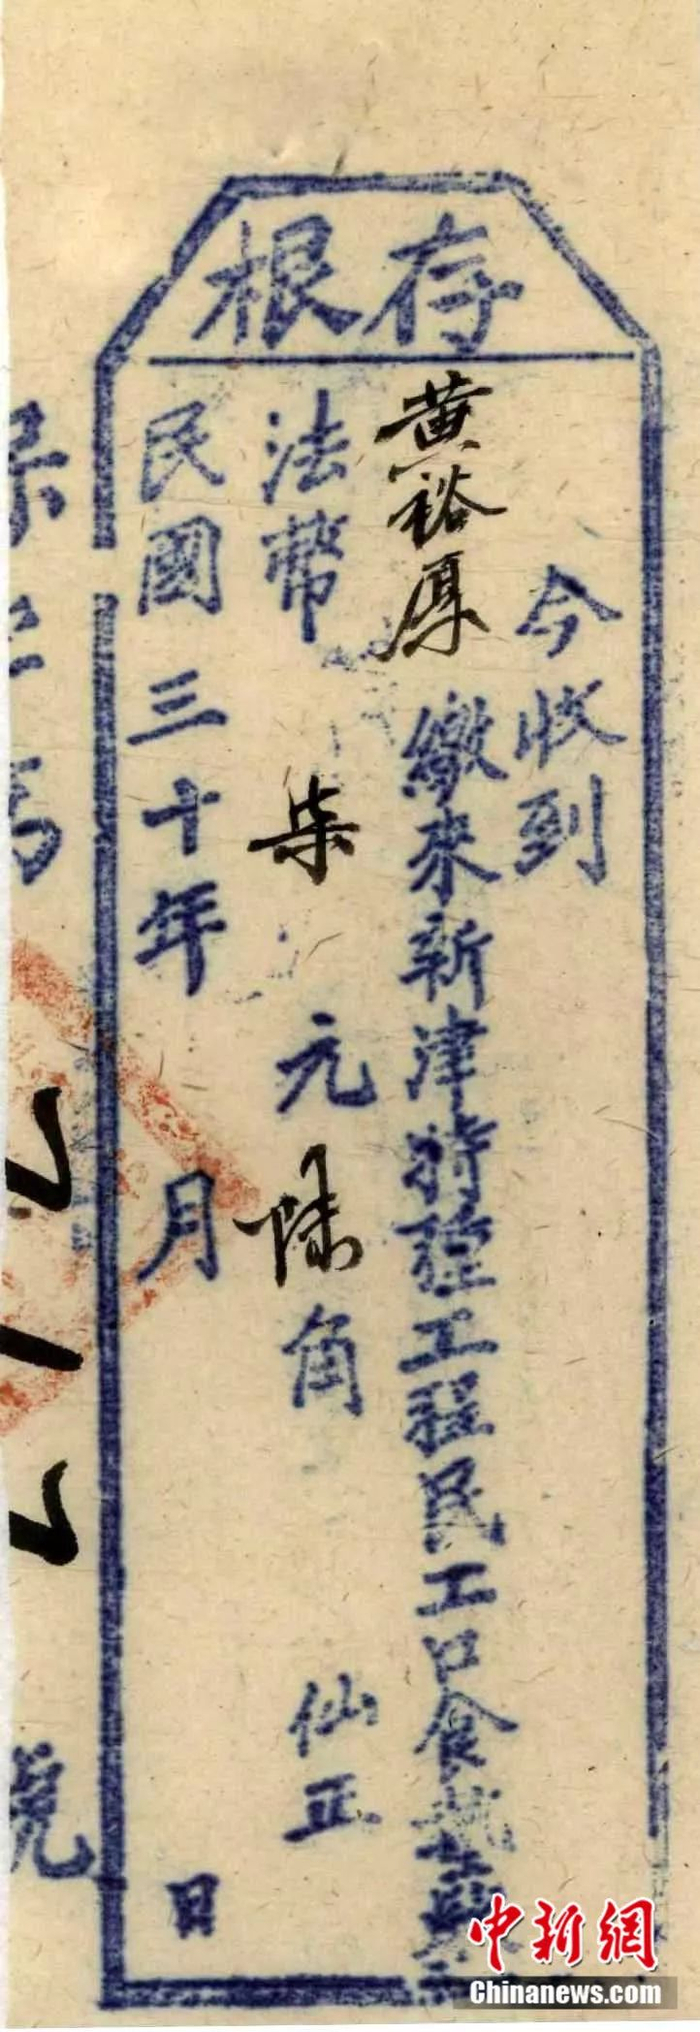 存根
今收到
黄裕厚繳來新津特種工程民工口食
法幣柒元陸角仙正
民國三十年月日
號
中新網
Chinanews.com